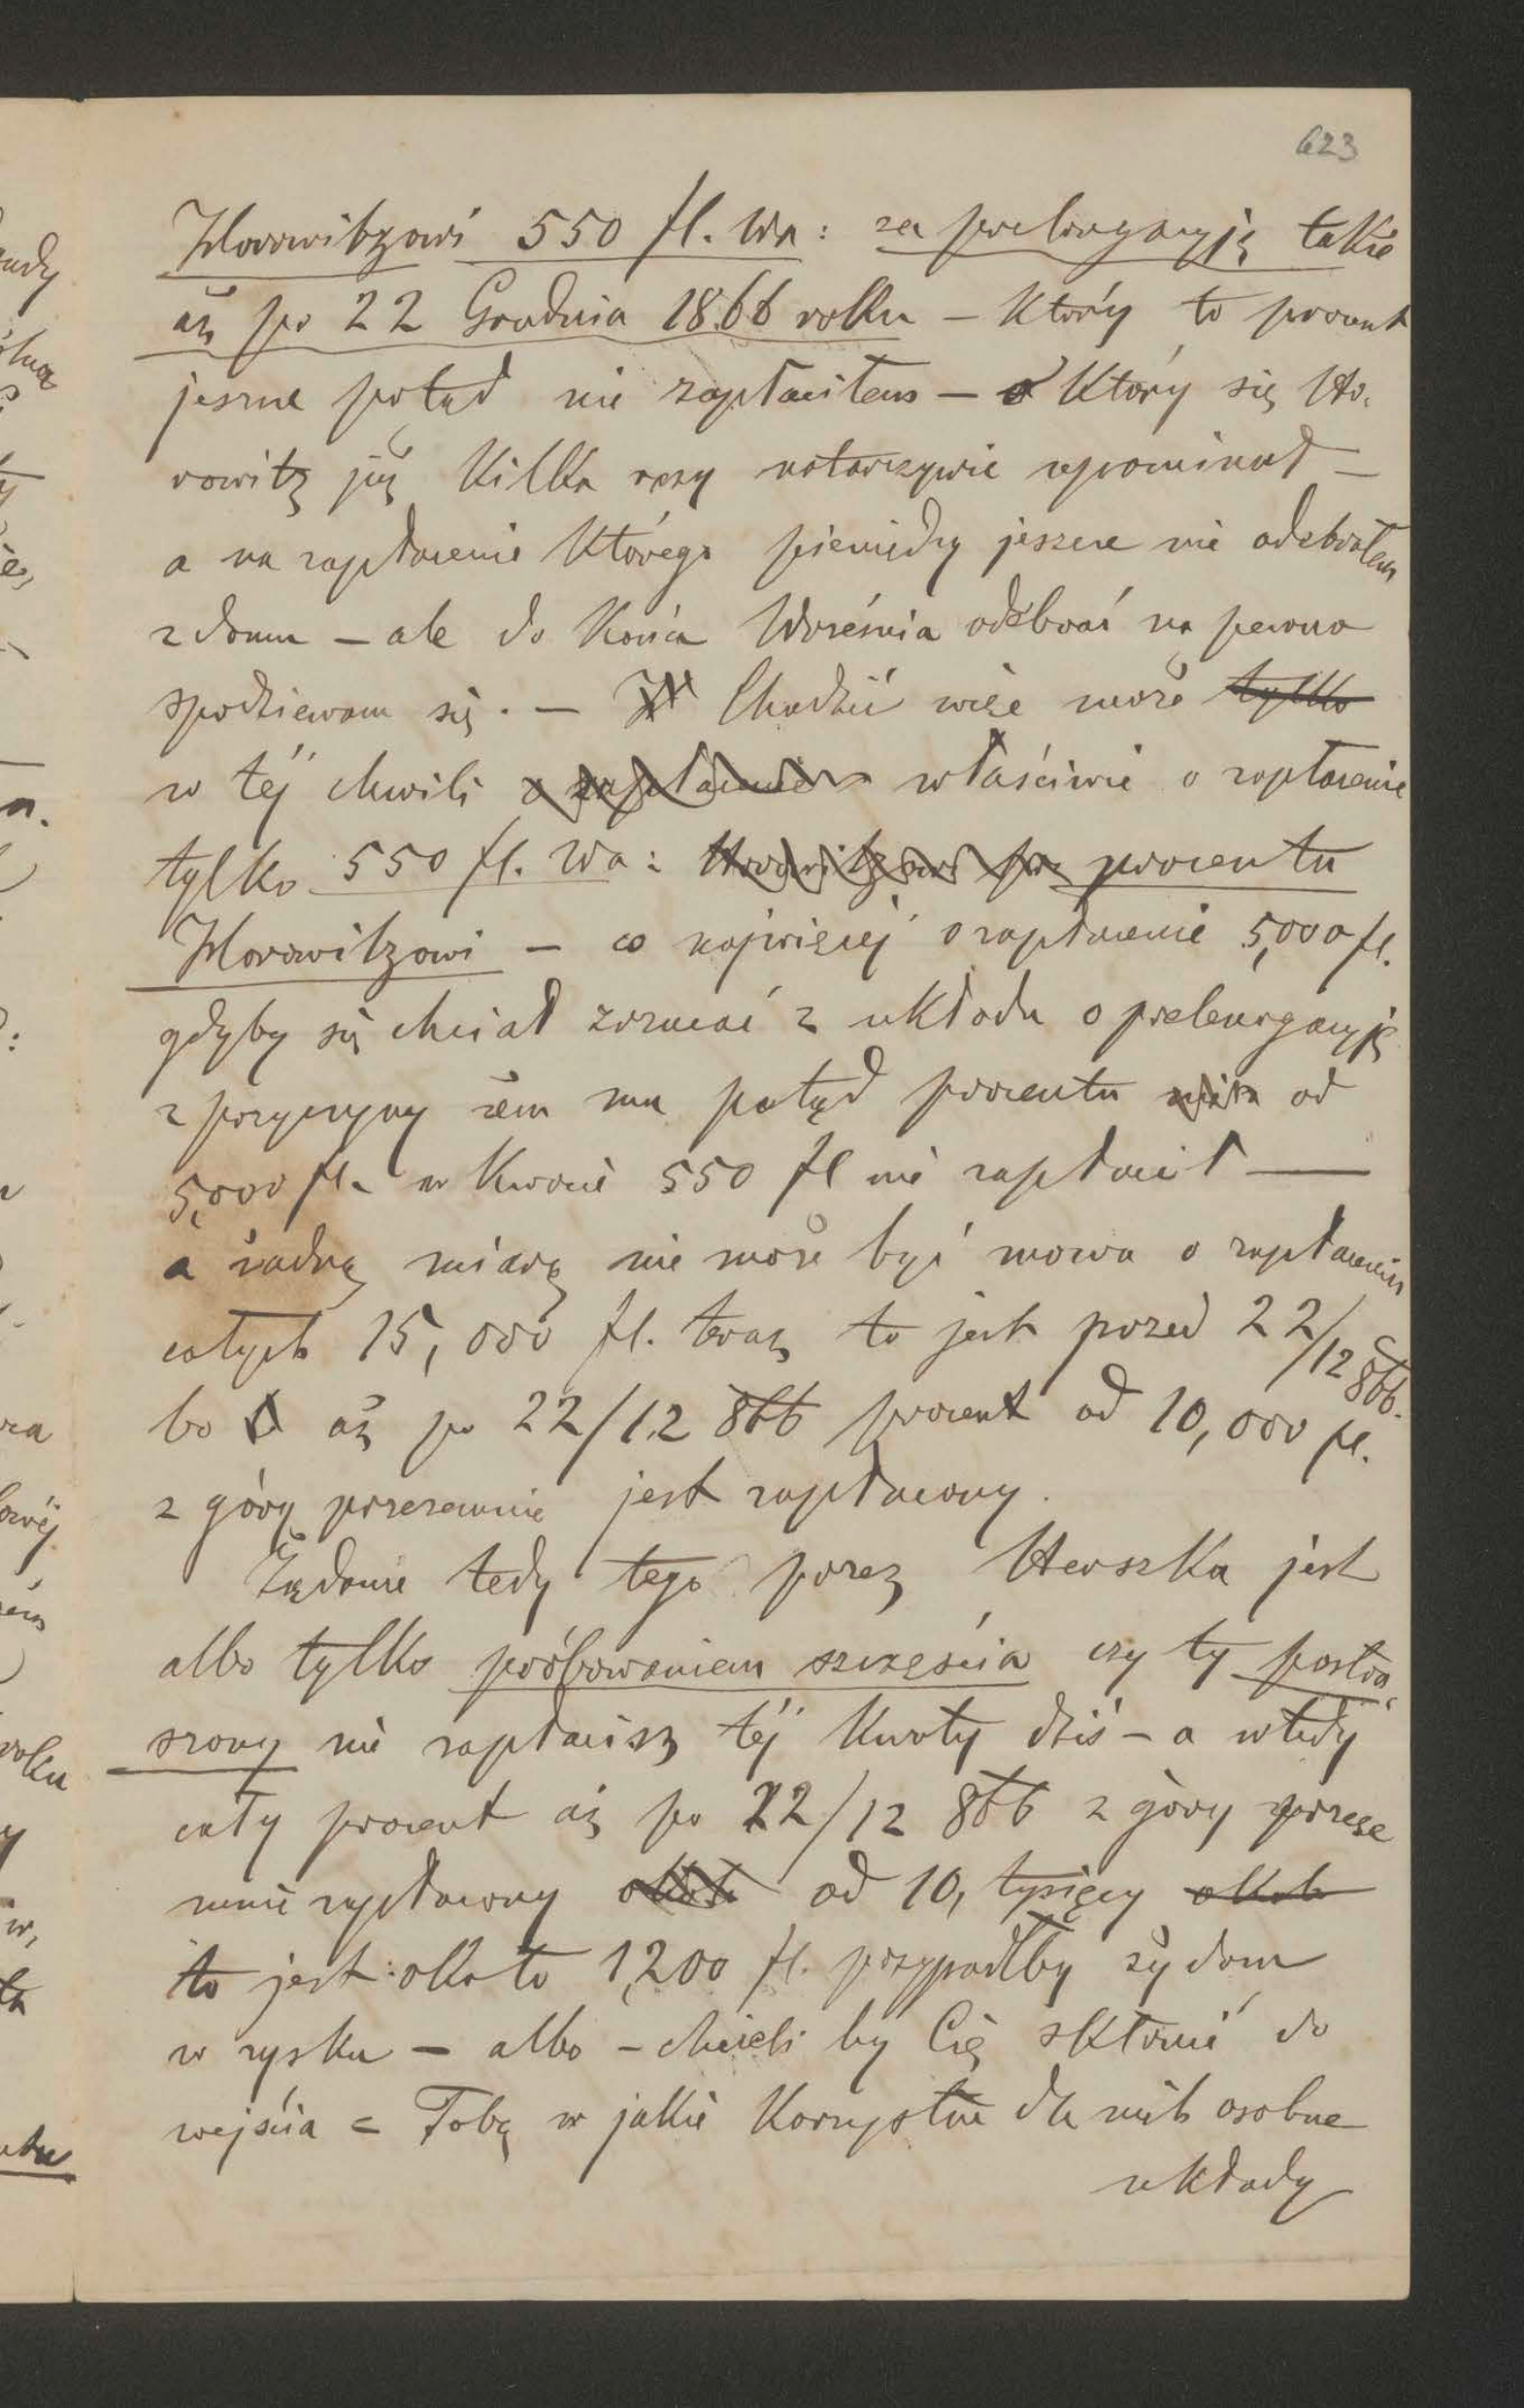 623
Horowitzowi 550 fl. Wa: za prolongacyję także
aż po 22 Grudnia 1866 roku – który to procent
jeszcze potąd nie zapłaciłem – o który się Ho-
rowitz już kilka razy natarczywie upominał –
a na zapłacenie którego pieniędzy jeszcze nie odebrałem
z domu – ale do końca Września odebrać na pewno
spodziewam się. – Chodzić więc może tylko
w téj chwili o zapłacenie właściwie o zapłacenie
tylko 550 fl. Wa: Horowitzowi procentu
Horowitzowi – co najwięcéj o zapłacenie 5,000 fl.
gdyby się chciał zrzucać z układu o prolongacyję
z przyczyny żem mu potąd procentu od
5,000 fl. w kwocie 550 fl nie zapłacił —
a żadną miarą nie może być mowa o zapłaceniu
całych 15,000 fl. teraz to jest przed 22/12 866.
bo aż po 22/12 866 procent od 10,000 fl.
z góry przezemnie jest zapłacony.
Żądanie tedy tego przez Herszka jest
albo tylko próbowaniem szczęścia czy ty postra-
szony nie zapłacisz téj kwoty dziś – a wtedy
cały procent aż po 22/12 866 z góry przeze
mnie zapłacony około od 10, tysięcy około
to jest: około 1,200 fl. przypadłby żydom
w zysku – albo – chcieli by Cię skłonić do
wejścia z Tobą w jakie korzystne dla nich osobne
układy